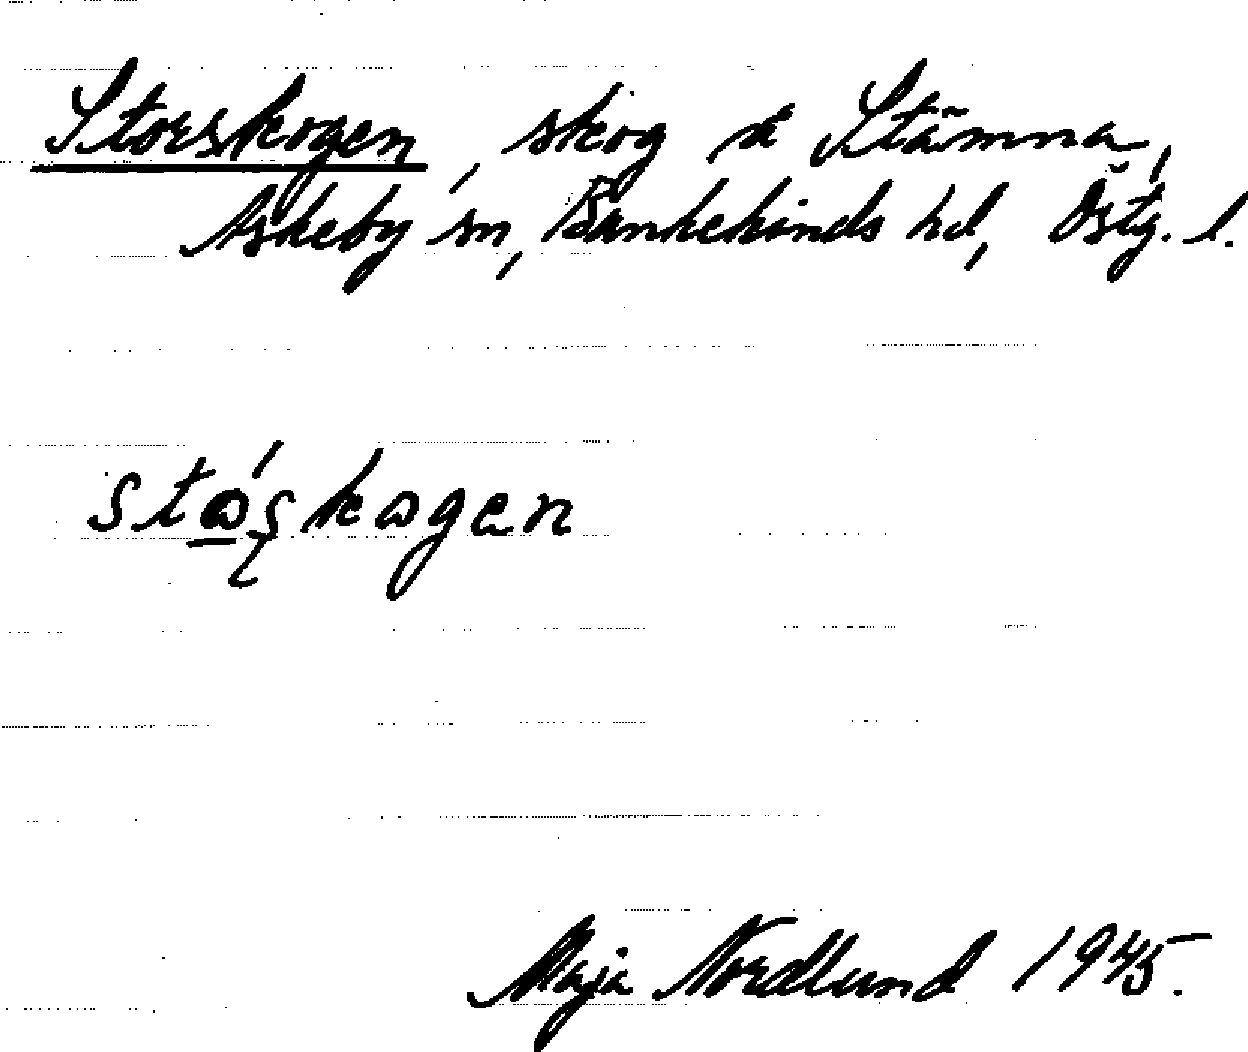 Storskogen, skog å Stämna,
Askeby sn, Bankekinds hd, Östg. l.
stɷ́ʂkɷgen
Maja Nordlund 1945.